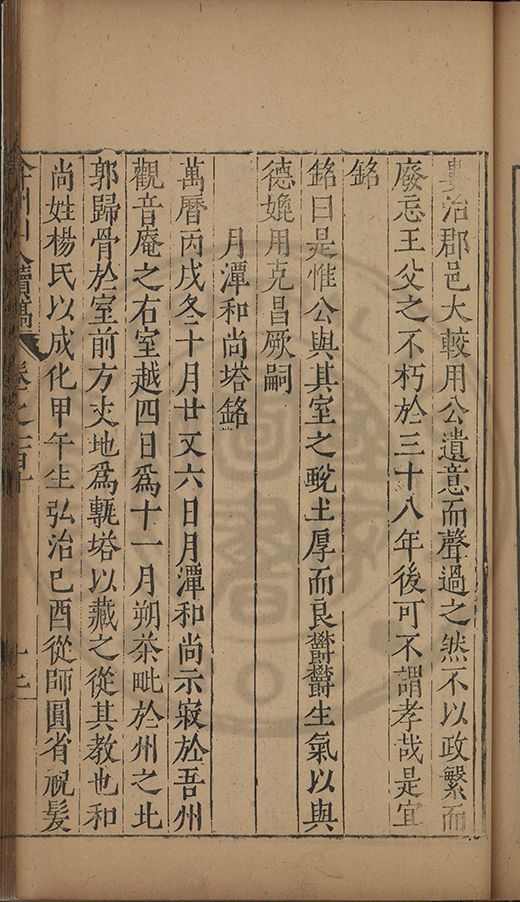 治郡邑大較用公遺意而聲過之然不以政繫而
廢忘王父之不朽於三十八年後可不謂孝哉是宜
銘
銘曰是惟公與其室之蛻土厚而良欝欝生氣以與
德媲用克昌厥嗣
月潭和尚塔銘
萬曆丙戌冬十月廿又六日月潭和尚示寂於吾州
觀音庵之右室越四日爲十一月朔茶毗於州之北
郭歸骨於室前方丈地爲甎塔以藏之從其教也和
尚姓楊氏以成化甲午生弘治己酉從師圓省祝髮
州山人續稿 卷之百